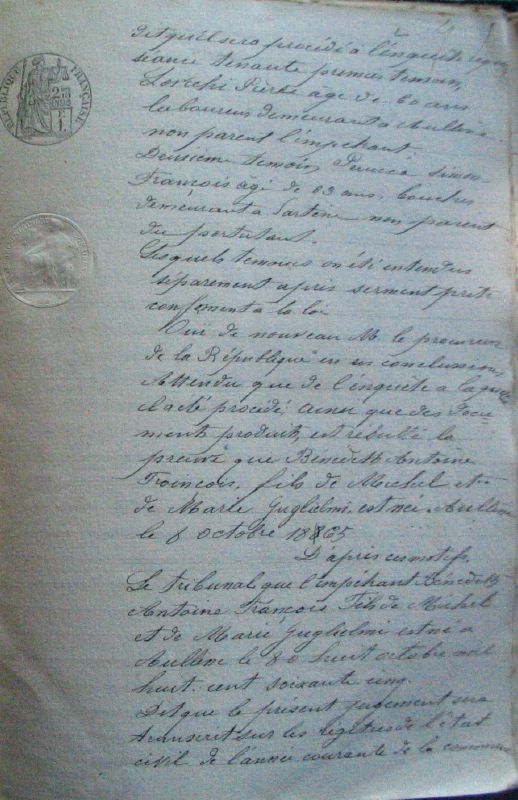 dit qu'il sera procédé à l'enquête
séance tenante premier temoin,
Pierre âgé de 60 ans
laboureur demeurant a Aullène
non parent l'impétrant
Deuxième temoin, Simon
François âgé de 63 ans, boucher
demeurant a Sartène non parent
du
Lesquels temoins on été entendus
séparement après serment prêté
conforment a la loi
Ouï de nouveau M. le procureur
de la République en ses conclusions
Attendu que de l'enquête a laquelle
il a été procédé, ainsi que des docu
ments produits, est résulté la
preuve que Bénédetti Antoine
François, fils de Michel et
de Marie Guglielmi est né a Aullène
le 8 octobre 1865
D'après ces motifs,
Le tribunal que l'impétrant Bénédetti
Antoine François fils de Michel
et de Marie Guglielmi est né a
Aullène le huit octobre mil
huit cent soixante cinq.
Dit que le présent jugement sera
transcrit sur les régistres de l'état
civil de l'année courante de la commune
RÉPUBLIQUE FRANÇAISE